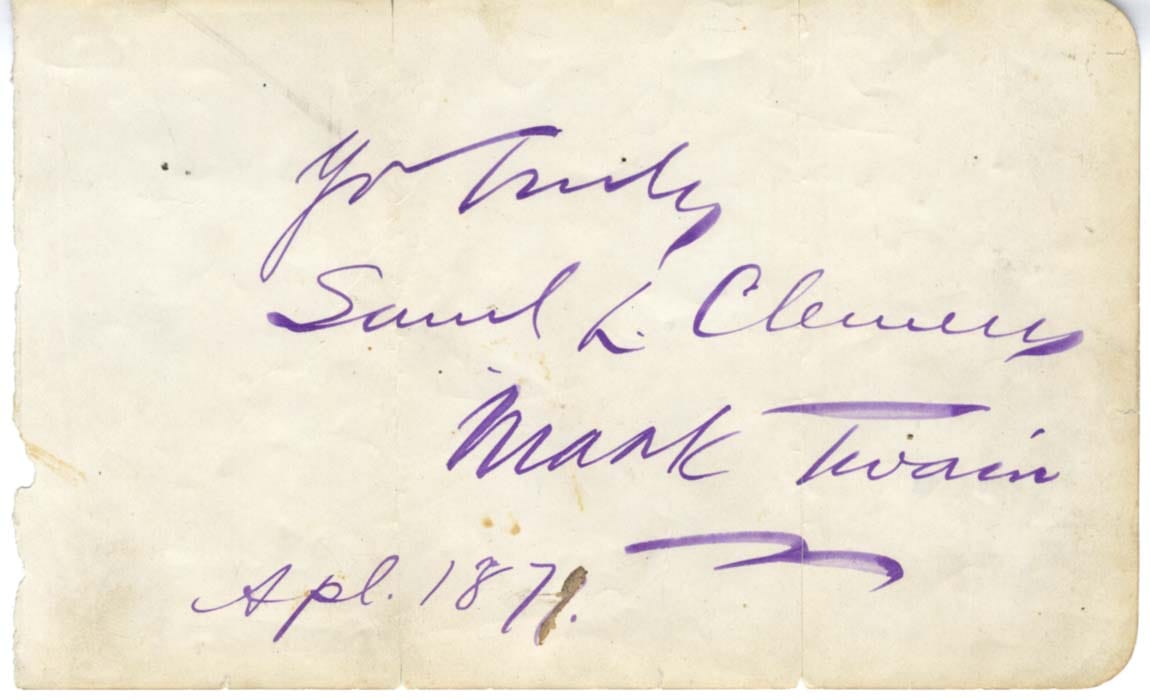 Yr Truly
Saml L. Clemens
Mark Twain
Apl. 1877.